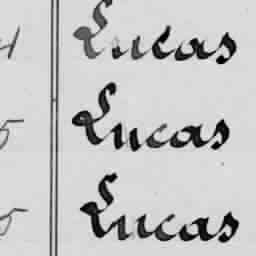 4 Lucas
5 Lucas
5 Lucas